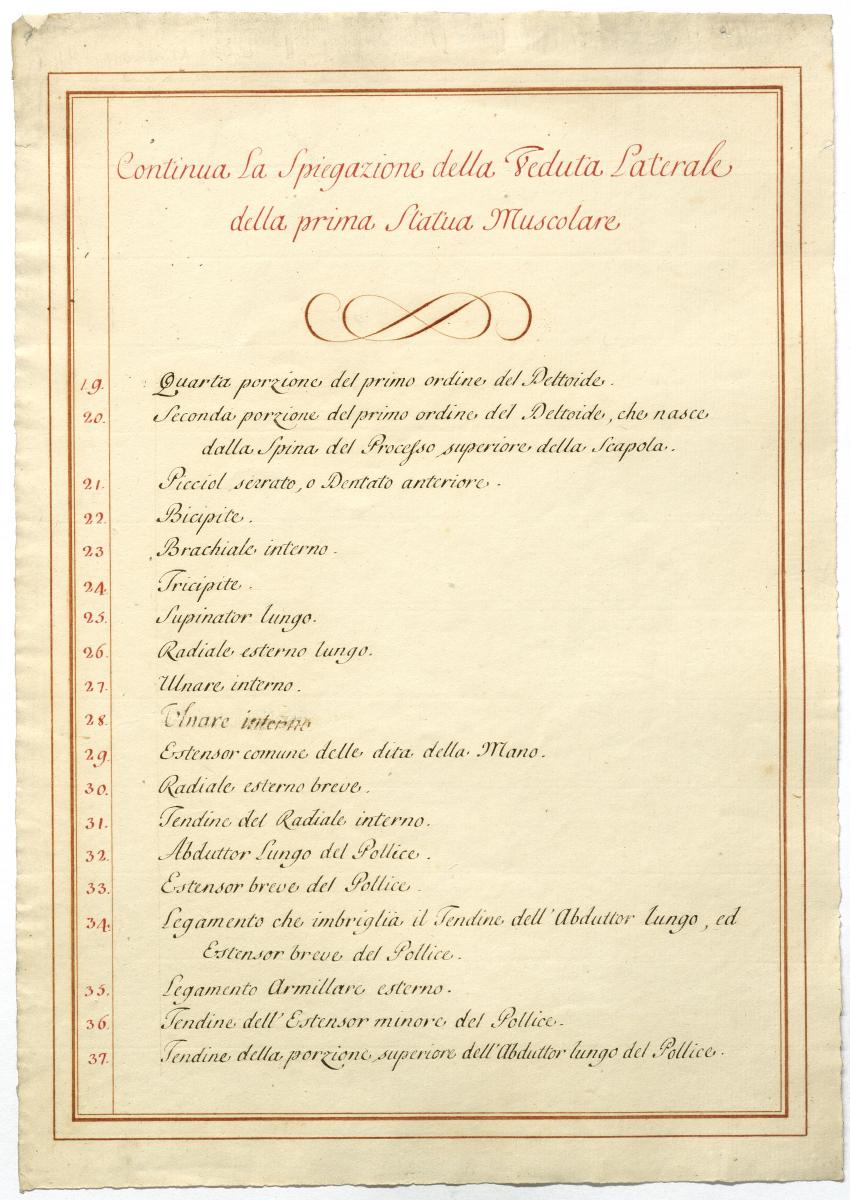 Continua La Spiegazione della Veduta Laterale
della prima Statua Muscolare
19. Quarta porzione del primo ordine del Deltoide.
20. Seconda porzione del primo ordine del Deltoide, che nasce
dalla Spina del Processo superiore della Scapola.
21. Picciol serrato, o Dentato anteriore.
22. Bicipite.
23 Brachiale interno.
24. Tricipite.
25. Supinator lungo.
26. Radiale esterno lungo.
27. Ulnare interno.
28. Ulnare interno
29. Estensor comune delle dita della Mano.
30. Radiale esterno breve.
31. Tendine del Radiale interno.
32. Abduttor Lungo del Pollice.
33. Estensor breve del Pollice.
34. Legamento che imbriglia il Tendine dell'Abduttor lungo, ed
Estensor breve del Pollice.
35. Legamento Armillare esterno.
36. Tendine dell'Estensor minore del Pollice.
37. Tendine della porzione superiore dell'Abduttor lungo del Pollice.